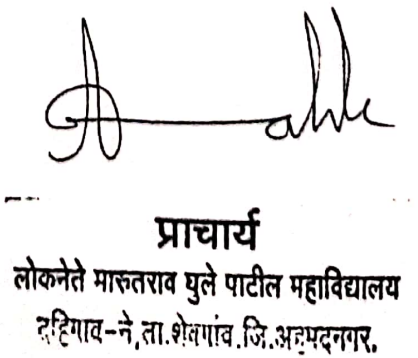 प्राचार्य
लोकनेते मारुतराव घुले पाटील महाविद्यालय
दहिगाव-ने, ता.शेवगांव. जि.अहमदनगर.